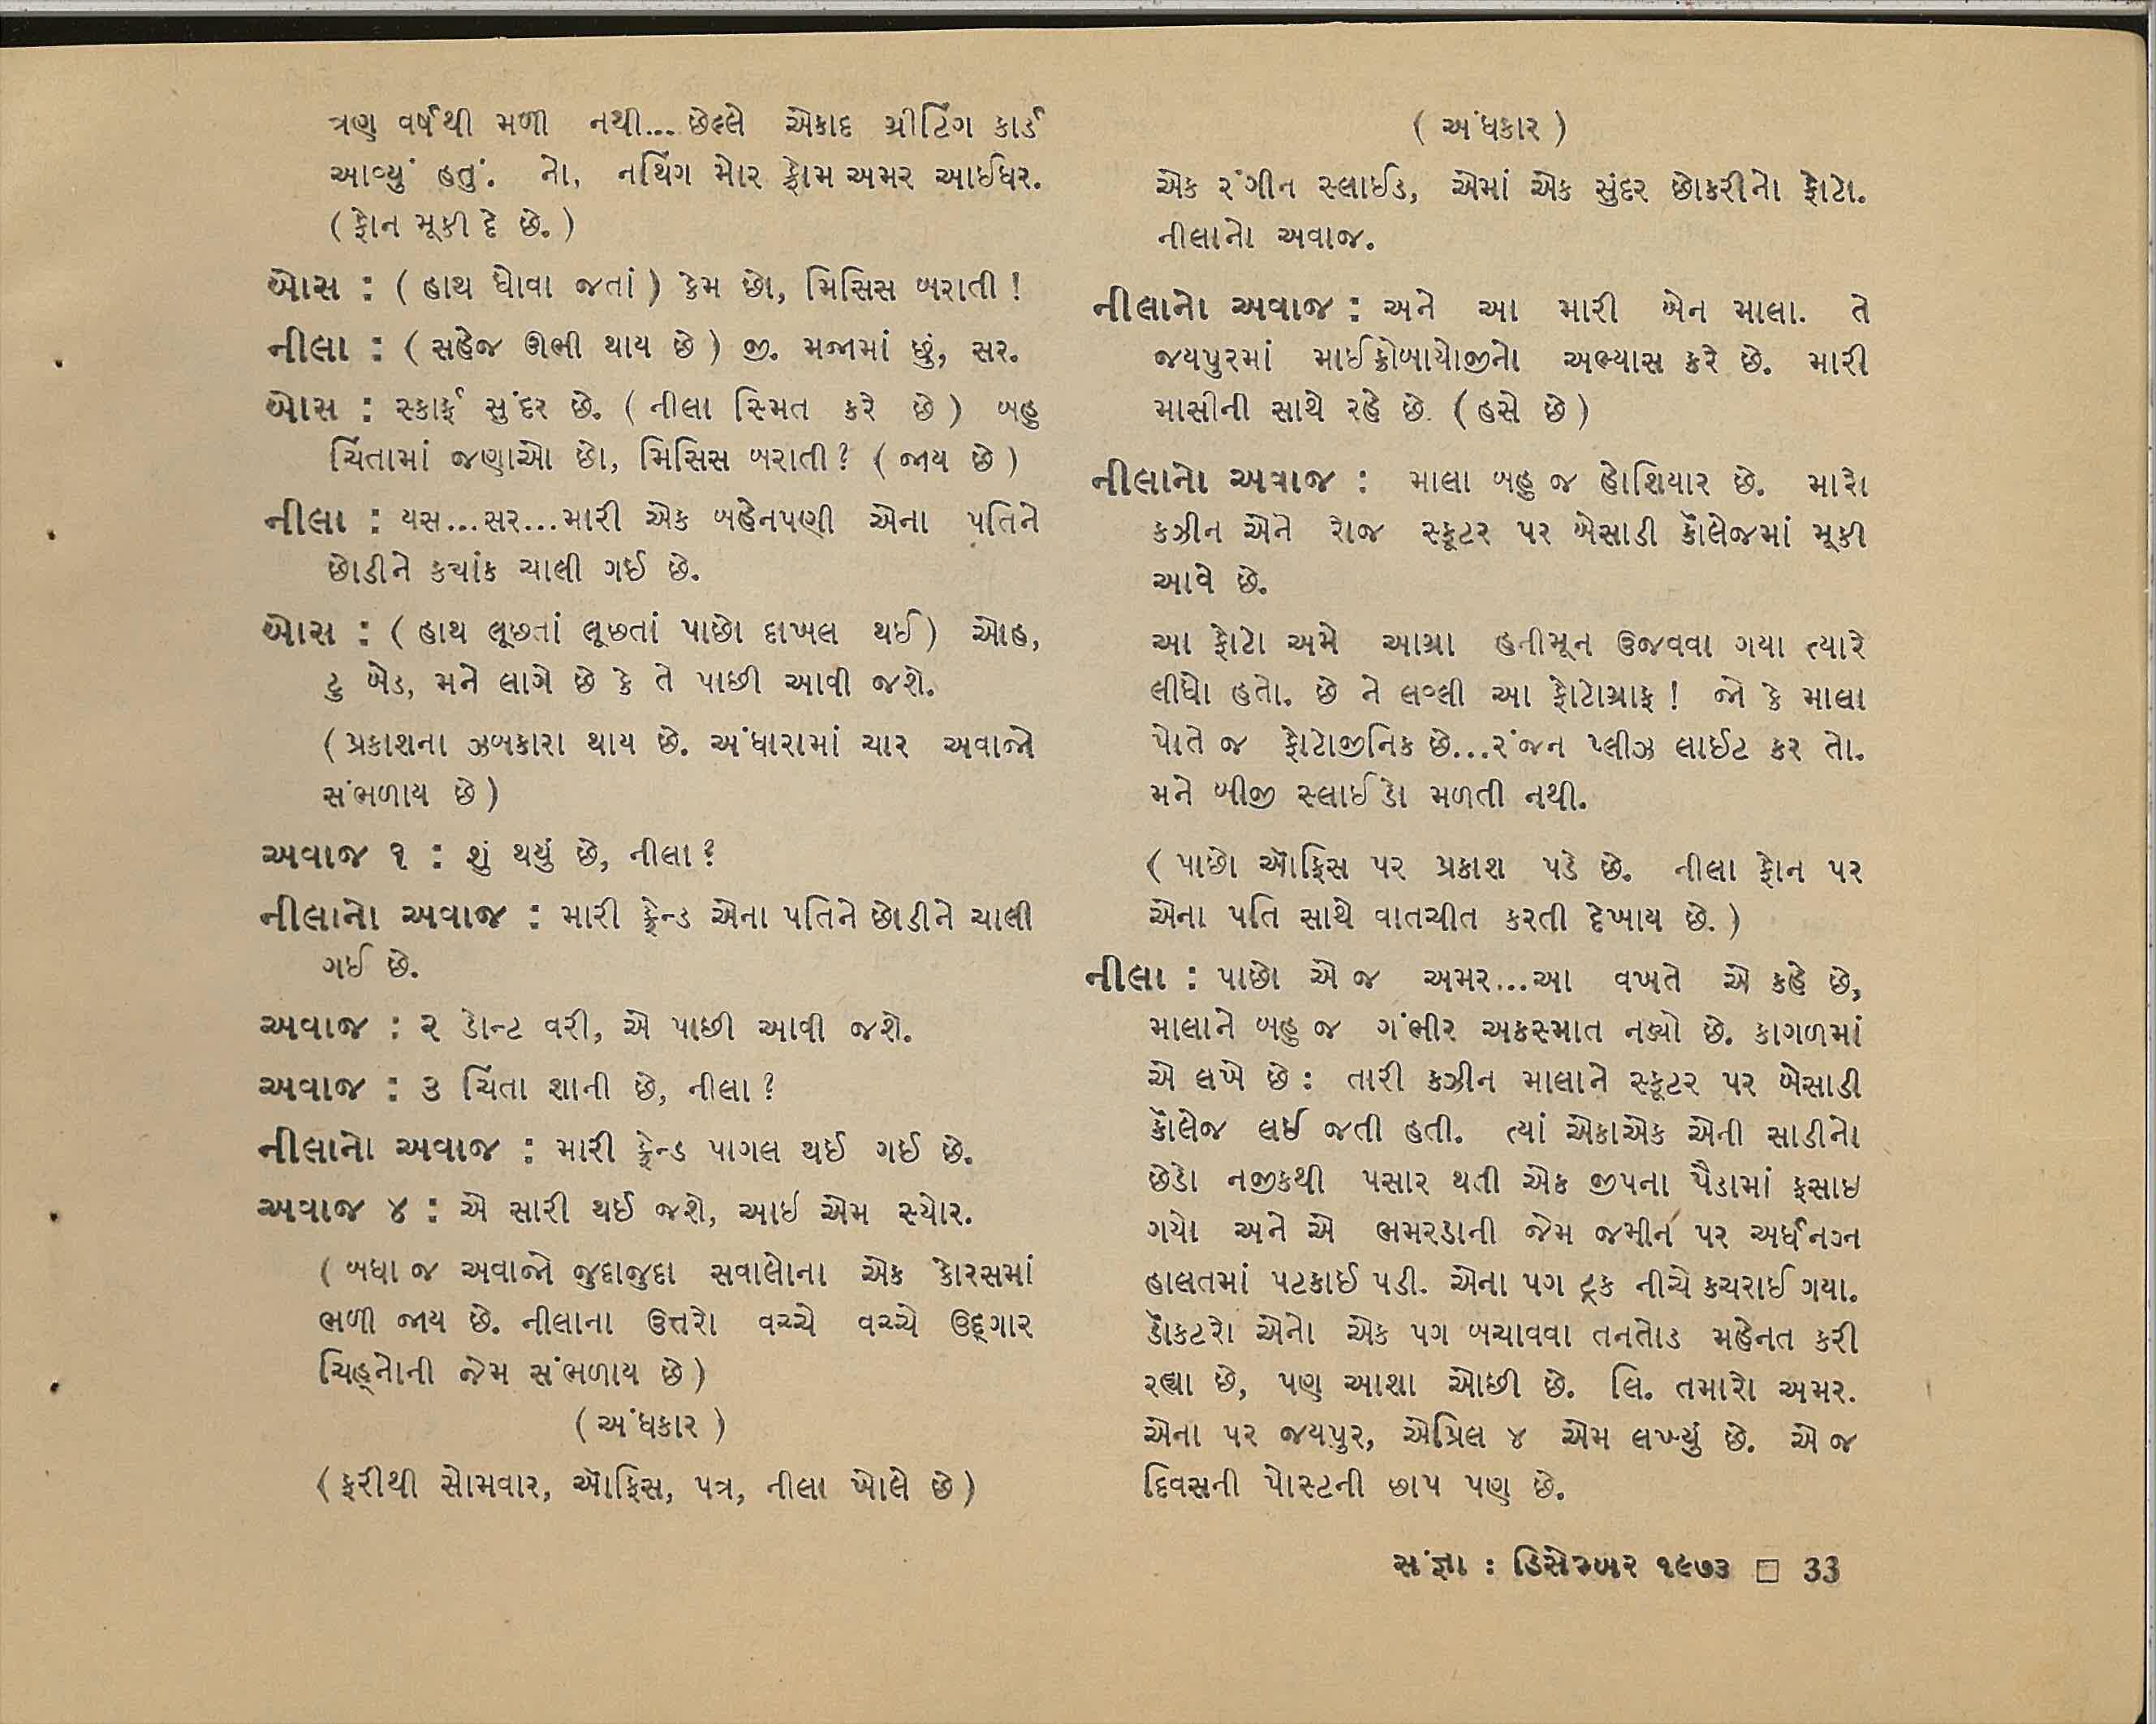 ત્રણ વર્ષથી મળી નથી... છેલ્લે એકાદ ગ્રીટિંગ કાર્ડ
આવ્યું હતું. નો, નથિંગ મોર ફ્રોમ અમર આઈધર.
(ફોન મૂકી દે છે.)
બોસ : (હાથ ધોવા જતાં) કેમ છો, મિસિસ બરાતી !
નીલા : (સહેજ ઊભી થાય છે) જી. મજામાં છું, સર.
બોસ : સ્કાર્ફ સુંદર છે. (નીલા સ્મિત કરે છે) બહુ
ચિંતામાં જણાઓ છો, મિસિસ બરાતી? (જાય છે)
નીલા : યસ...સર...મારી એક બહેનપણી એના પતિને
છોડીને ક્યાંક ચાલી ગઈ છે.
બોસ : (હાથ લૂછતાં લૂછતાં પાછો દાખલ થઈ) ઓહ,
ટુ બેડ, મને લાગે છે કે તે પાછી આવી જશે.
(પ્રકાશના ઝબકારા થાય છે. અંધારામાં ચાર અવાજો
સંભળાય છે)
અવાજ ૧ : શું થયું છે, નીલા?
નીલાનો અવાજ : મારી ફ્રેન્ડ એના પતિને છોડીને ચાલી
ગઈ છે.
અવાજ : ૨ ડોન્ટ વરી, એ પાછી આવી જશે.
અવાજ : ૩ ચિંતા શાની છે, નીલા?
નીલાનો અવાજ : મારી ફ્રેન્ડ પાગલ થઈ ગઈ છે.
અવાજ ૪ : એ સારી થઈ જશે, આઇ એમ સ્યોર.
(બધા જ અવાજો જુદાજુદા સવાલોના એક કોરસમાં
ભળી જાય છે. નીલાના ઉત્તરો વચ્ચે વચ્ચે ઉદ્ગાર
ચિહ્નોની જેમ સંભળાય છે)
(અંધકાર)
(ફરીથી સોમવાર, ઑફિસ, પત્ર, નીલા ખોલે છે)
(અંધકાર)
એક રંગીન સ્લાઈડ, એમાં એક સુંદર છોકરીનો ફોટો.
નીલાનો અવાજ.
નીલાનો અવાજ : અને આ મારી બેન માલા. તે
જયપુરમાં માઈક્રોબાયોજીનો અભ્યાસ કરે છે. મારી
માસીની સાથે રહે છે. (હસે છે)
નીલાનો અવાજ : માલા બહુ જ હોશિયાર છે. મારો
કઝીન એને રોજ સ્કૂટર પર બેસાડી કૉલેજમાં મૂકી
આવે છે.
આ ફોટો અમે આગ્રા હનીમૂન ઉજવવા ગયા ત્યારે
લીધો હતો. છે ને લવ્લી આ ફોટોગ્રાફ ! જો કે માલા
પોતે જ ફોટોજીનિક છે...રંજન પ્લીઝ લાઈટ કર તો.
મને બીજી સ્લાઈડો મળતી નથી.
(પાછો ઑફિસ પર પ્રકાશ પડે છે. નીલા ફોન પર
એના પતિ સાથે વાતચીત કરતી દેખાય છે.)
નીલા : પાછો એ જ અમર...આ વખતે એ કહે છે,
માલાને બહુ જ ગંભીર અકસ્માત નડ્યો છે. કાગળમાં
એ લખે છે : તારી કઝીન માલાને સ્કૂટર પર બેસાડી
કૉલેજ લઈ જતી હતી. ત્યાં એકાએક એની સાડીનો
છેડો નજીકથી પસાર થતી એક જીપના પૈડામાં ફસાઇ
ગયો અને એ ભમરડાની જેમ જમીન પર અર્ધનગ્ન
હાલતમાં પટકાઈ પડી. એના પગ ટ્રક નીચે કચરાઈ ગયા.
ડૉકટરો એનો એક પગ બચાવવા તનતોડ મહેનત કરી
રહ્યા છે, પણ આશા ઓછી છે. લિ. તમારો અમર.
એના પર જયપુર, એપ્રિલ ૪ એમ લખ્યું છે. એ જ
દિવસની પોસ્ટની છાપ પણ છે.
સંજ્ઞા : ડિસેમ્બર ૧૯૭૩ □ 33